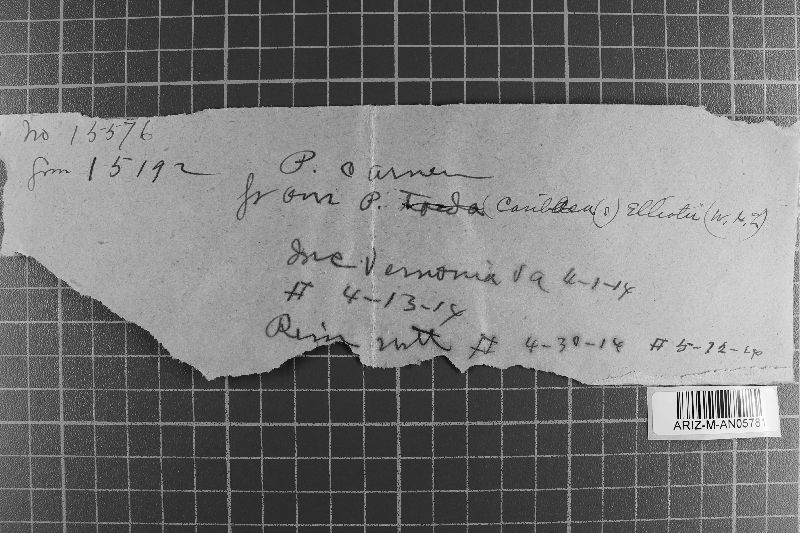 No 15576
from 15192
P. carnea
from P. Taeda (Caribaea (?) Elliotii (W.H.L)
Inc Vernonia Va 4-1-14
# 4-13-14
Rein with # 4-30-14 # 5-12-14
ARIZ-M-AN05781